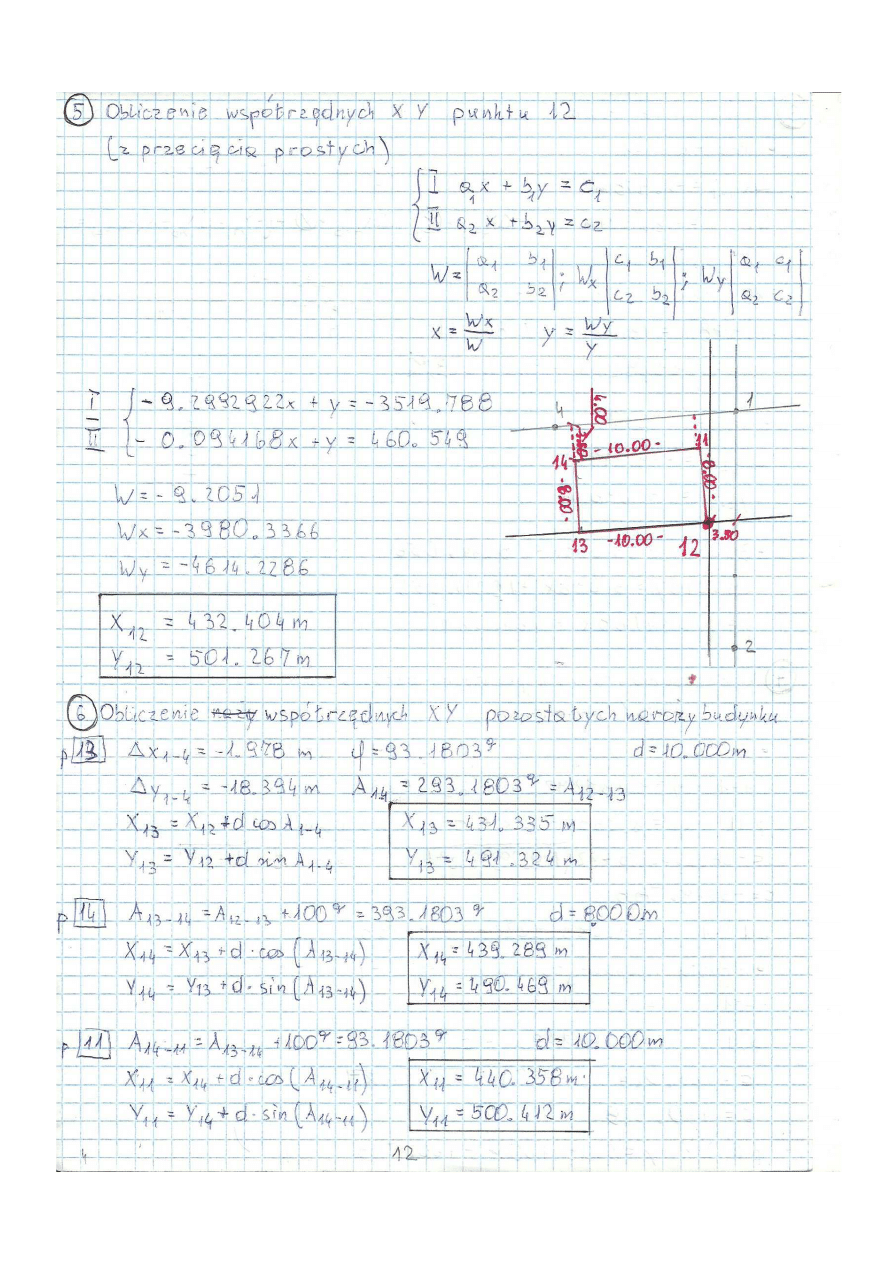 5 Obliczenie współrzędnych X Y punktu 12
(z przecięcia prostych)
I a1x + b1y = c1
II a2x + b2y = c2
W = | a1 b1 | ; Wx | c1 b1 | ; Wy | a1 c1 |
| a2 b2 | | c2 b2 | | a2 c2 |
x = Wx/W y = Wy/y
I - 9.2992922x + y = -3519.788
II - 0.094168x + y = 460.549
W = - 9.2051
Wx = -3980.3366
Wy = -4614.2286
X12 = 432.404 m
Y12 = 501.267 m
1
4
4.00
11
-10.00-
14
-8.00-
-8.00-
13
-10.00-
12
3.50
2
6 Obliczenie współrzędnych XY pozostałych naroży budynku
p 13 Δx1-4 = -1.978 m φ = 93.1803g d = 10.000m
Δy1-4 = -18.394 m A14 = 293.1803g = A12-13
X13 = X12 + d cos A1-4 X13 = 431.335 m
Y13 = Y12 + d sin A1-4 Y13 = 491.324 m
p 14 A13-14 = A12-13 + 100g = 393.1803g d = 8000m
X14 = X13 + d · cos (A13-14) X14 = 439.289 m
Y14 = Y13 + d · sin (A13-14) Y14 = 490.469 m
p 11 A14-11 = A13-14 + 100g = 93.1803g d = 10.000m
X11 = X14 + d · cos (A14-11) X11 = 440.358 m
Y11 = Y14 + d · sin (A14-11) Y11 = 500.412 m
4 12